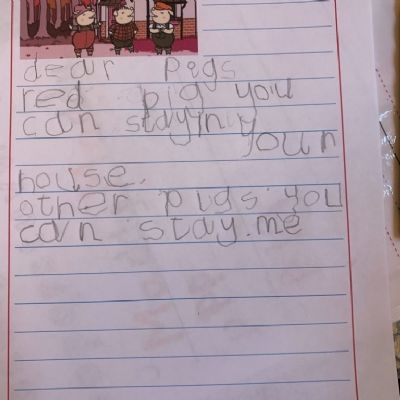 dear pigs
red pig you
can stay in y
your
house.
other pigs you
can stay. me